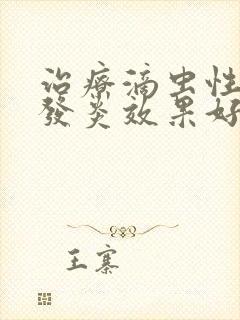 治療滴虫性
發炎效果好
王寨